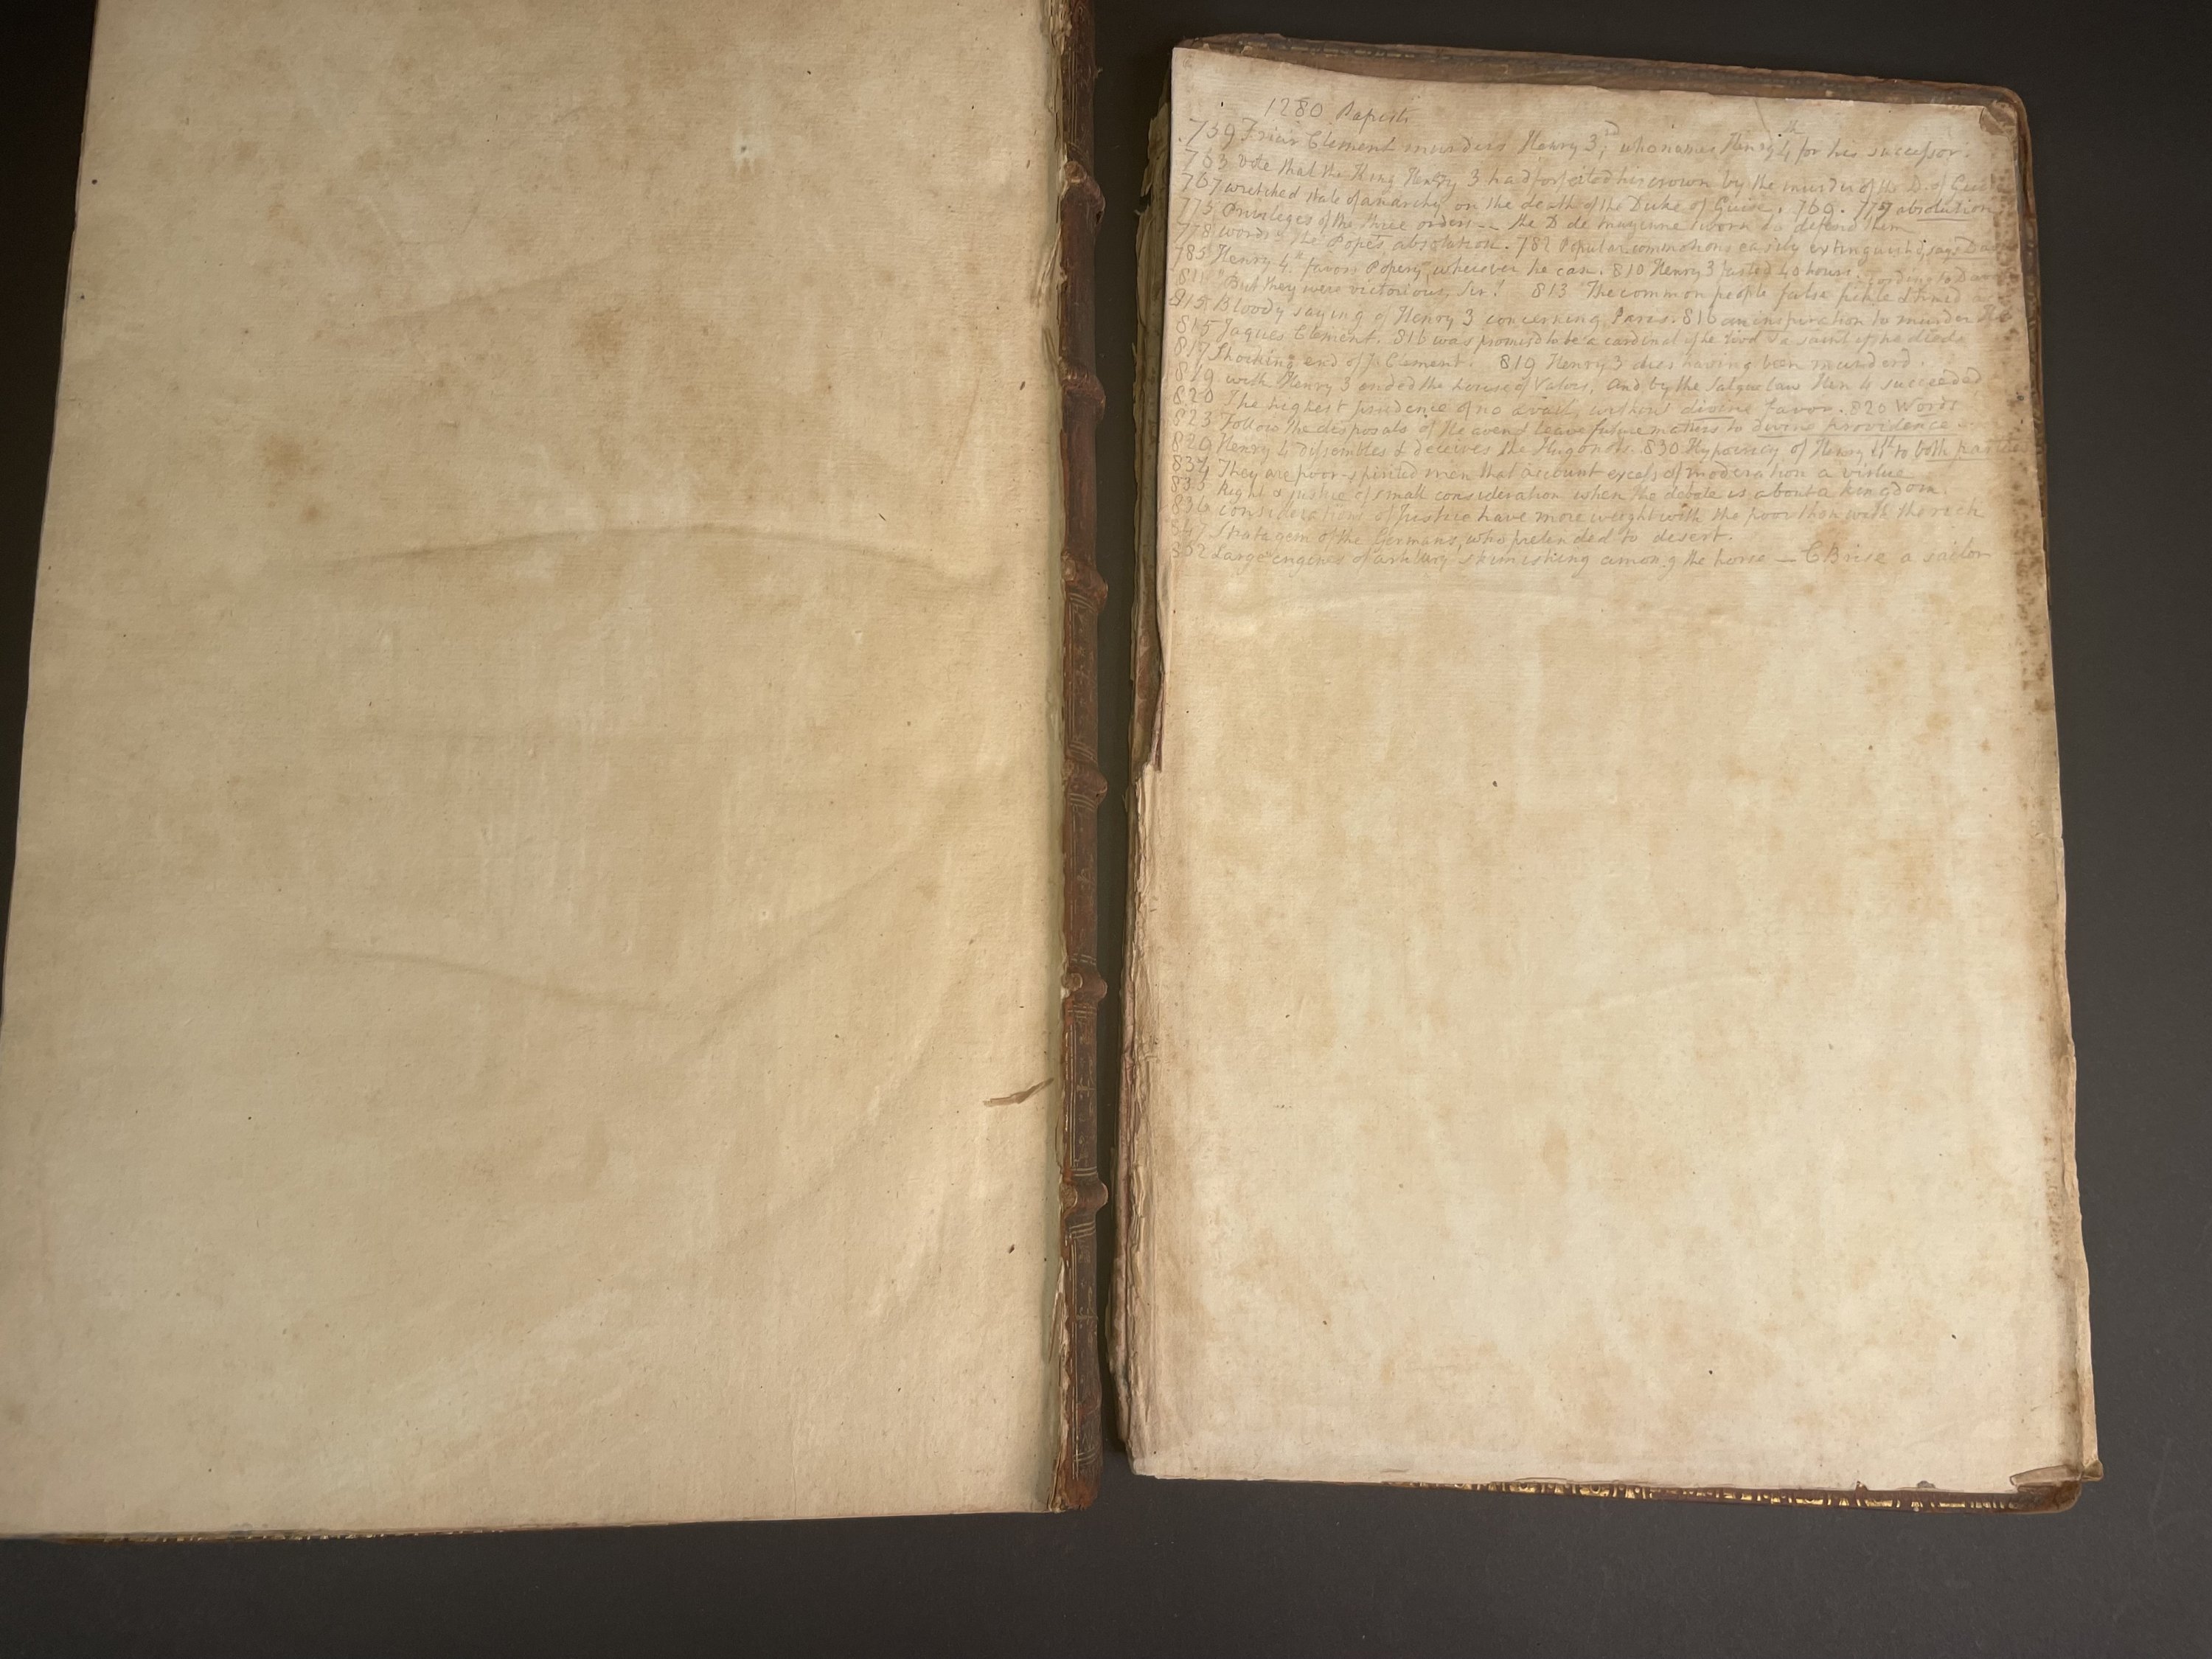 1280 Papists
759 Friar Clement murders Henry 3rd, who names Henry 4th for his successor.
763 vote that the King Henry 3 had forfeited his crown by the murder of the D. of Guise
767 wretched state of anarchy on the death of the Duke of Guise. 769. 777 absolution
775 Privileges of the three orders -- the D de mayenne sworn to defend them
778 words of the Pope's absolution. 782 Popular commotions easily extinguish'd, says
785 Henry 4th favors Popery, wherever he can. 810 Henry 3 fasted 40 hours. according to
811 "But they were victorious, Sir! 813 The common people false fickle
815 Bloody saying of Henry 3 concerning Paris. 816 an inspiration to murder
815 Jaques Clement. 816 was promised to be a cardinal if he lived & a saint if he died
817 Shocking end of J. Clement. 819 Henry 3 dies having been murderd.
819 with Henry 3 ended the house of Valois, and by the Salque law Hen 4 succeeded
820 The highest prudence of no avail, without divine favor. 820 Words
823 Follow the disposals of Heaven & leave future matters to divine providence
829 Henry 4 dissembles & deceives the Hugonots. 830 Hypocrisy of Henry 4th to both parties
834 They are poor-spirited men that account excess of moderation a virtue
835 Right & justice of small consideration when the debate is about a kingdom.
836 considerations of Justice have more weight with the poor than with the rich
847 Stratagem of the Germans, who pretended to desert.
852 Large engines of artillery skirmishing among the horse — C Brise a sailor